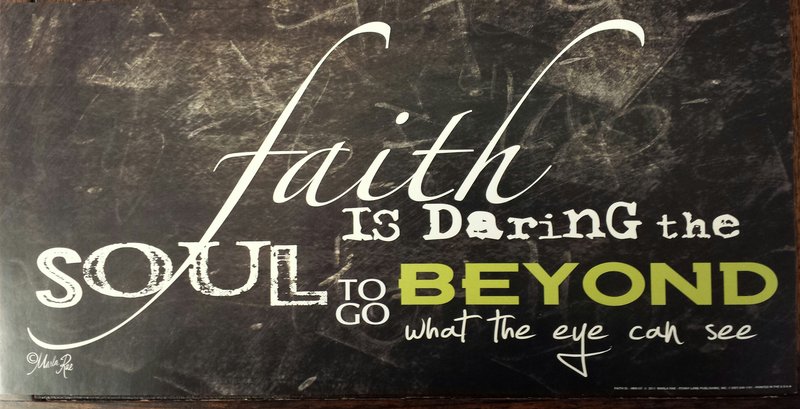 faith
IS DarinG the
SOUL TO GO BEYOND
what the eye can see
©Marla Rae